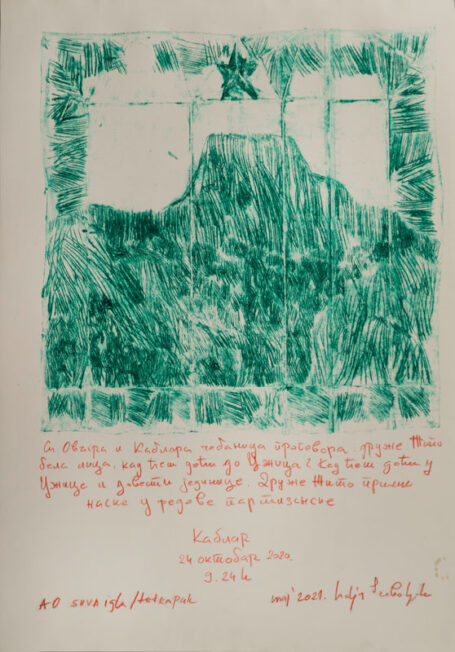 Са Овчара и Каблара чобаница проговора. Друже Тито
бела лица, кад ћеш доћи до Ужица? Кад ћеш доћи у
Ужице и довести јединице. Друже Тито прими
наске у редове партизанске
Каблар
24 октобар 2020.
9.24h
A-O suva igla/tetrapak
maj 2021.